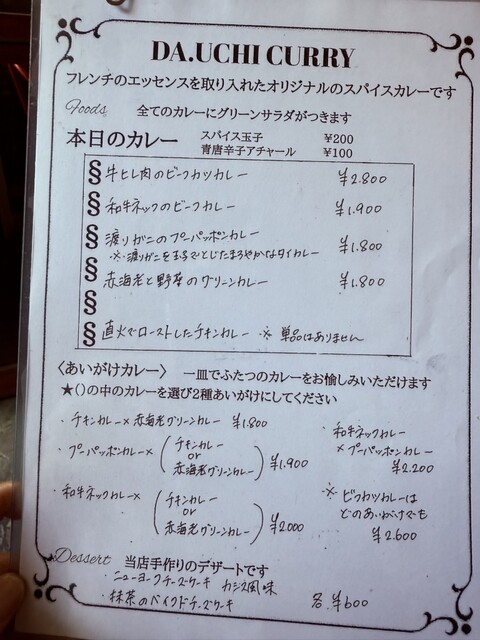 DA.UCHI CURRY
フレンチのエッセンスを取り入れたオリジナルのスパイスカレーです
Foods 全てのカレーにグリーンサラダがつきます
本日のカレー スパイス玉子 ¥200
青唐辛子アチャール ¥100
§ 牛ヒレ肉のビーフカツカレー ¥2.800
§ 和牛ネックのビーフカレー ¥1.900
§ 渡りガニのプーパッポンカレー ¥1.800
※ 渡りガニを玉子でとじたまろやかなタイカレー
§ 赤海老と野菜のグリーンカレー ¥1.800
§
§ 直火でローストしたチキンカレー ※ 単品はありません
〈あいがけカレー〉 一皿でふたつのカレーをお愉しみいただけます
★()の中のカレーを選び2種あいがけにしてください
・チキンカレー×赤海老グリーンカレー ¥1.800
・プーパッポンカレー×(チキンカレー or 赤海老グリーンカレー) ¥1.900
・和牛ネックカレー×(チキンカレー or 赤海老グリーンカレー) ¥2000
・和牛ネックカレー
×プーパッポンカレー
¥2.200
※ ビフカツカレーは
どのあいがけでも
¥2.600
Dessert 当店手作りのデザートです
・ニューヨークチーズケーキ カシス風味
・抹茶のベイクドチーズケーキ 各 ¥600